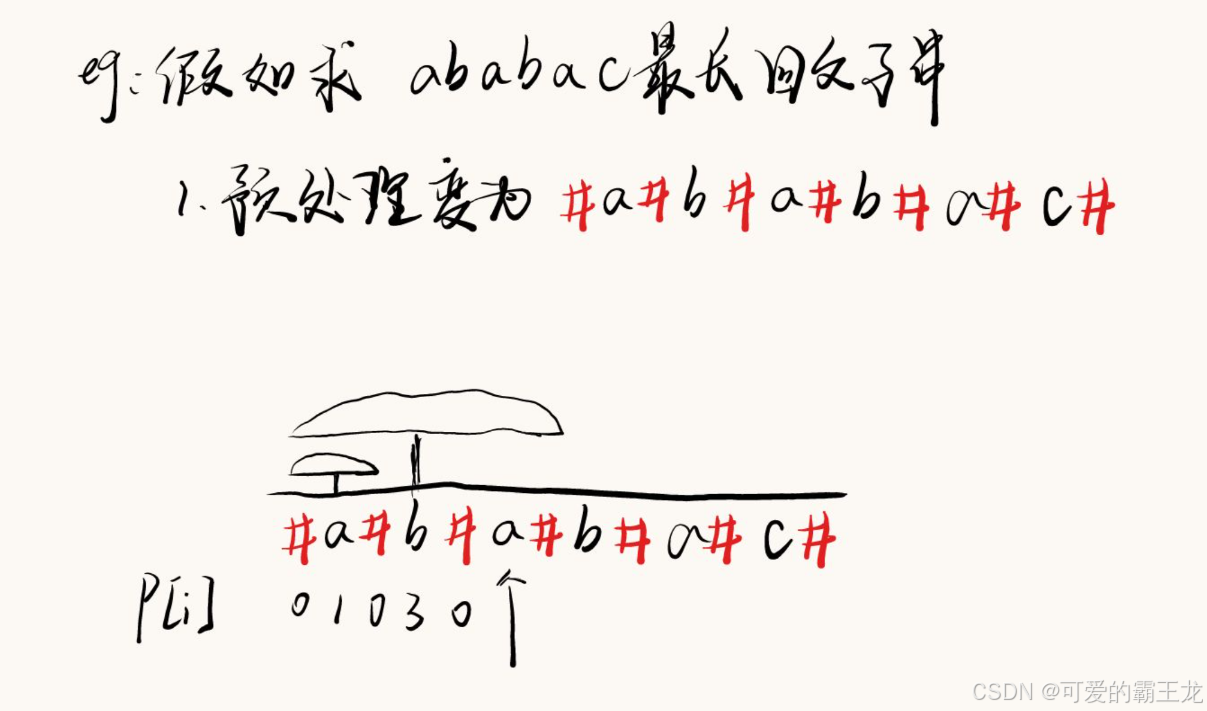 eg:假如求 ababac最长回文子串
1.预处理变为 #a#b#a#b#a#c#
#a#b#a#b#a#c#
P[i] 0 1 0 3 0 个
CSDN @可爱的霸王龙